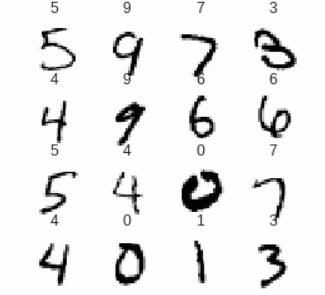 5 9 7 3
5 9 7 3
4 9 6 6
4 9 6 6
5 4 0 7
5 4 0 7
4 0 1 3
4 0 1 3